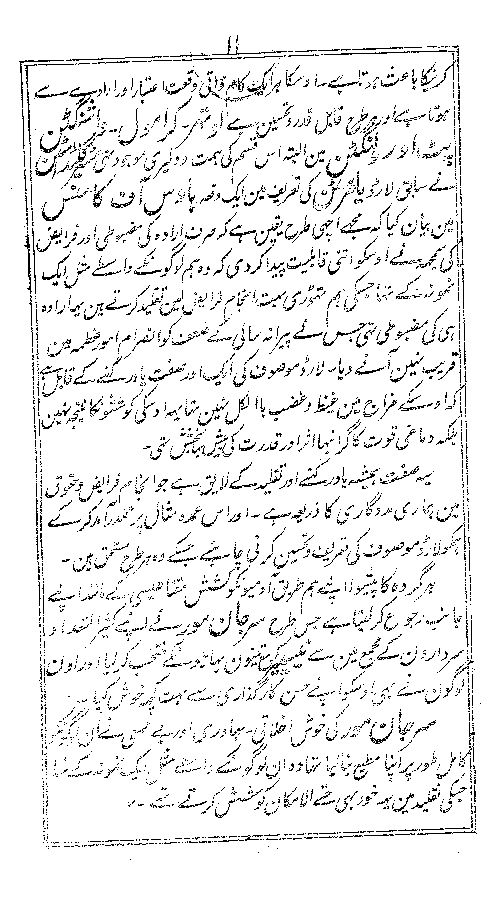 ۱۱
کرنیکا باعث ہوتا ہے ۔ اوسکا ہر ایک کام ذاتی وقعت اعتبار اور ارادے سے
ہوتا ہے اور ہر طرح قابل قدر و تحسین ہے لوتھر ۔ کرامول ۔ واشنگٹن
پٹ اور ولنگٹن مین البتہ اس قسم کی ہمت و دلیری موجود تھی
نے سابق لارڈ پامرسٹن کی تعریف مین ایک دفعہ ہاؤس آف کامنس
مین بیان کیا کہ مجھے اچھی طرح یقین ہے کہ صرف ارادہ کی مضبوطی اور فرایض
کی سمجھ نے اوسکو اتنی قابلیت پیدا کردی کہ وہ ہم لوگونکے واسطے مثل ایک
نمونہ کے تھا جسکی ہم تھوڑی بہت انجام فرایض مین تقلید کرتے ہین یہ ارادہ
ہی کی مضبوطی تھی جس نے پیرانہ سالی کے ضعف کو انصرام امور عظیمہ مین
قریب نہین آنے دیا ۔ لارڈ موصوف کی ایک اور صفت یاد رکھنے کے قابل ہے
کہ اوسکے مزاج مین غیظ و غضب بالکل نہین تھا یہ اوسکی کوششونکا نتیجہ نہین
بلکہ دماغی قوت کا گرانبہا اثر اور قدرت کی بخشش تھی ۔
یہ صفت ہمیشہ یاد رکھنے اور تقلید کے لایق ہے جو انجام فرایض و حقوق
مین ہماری مددگاری کا ذریعہ ہے ۔ اور اس عمدہ مثال پر عملدرآمد کرکے
ہمکو لارڈ موصوف کی تعریف و تحسین کرنی چاہئے جسکے وہ ہر طرح مستحق ہین ۔
ہر گروہ کا پیشوا اپنے ہم طریق آدمیونکو کشش مقناطیسی کے مانند اپنے
جانب رجوع کرلیتا ہے جس طرح سرجان مور نے اپنے کثیر التعداد
سردارون کے مجمع مین سے نیپیر کے تینون بھائیونکے منتخب کرلیا اور اون
لوگون نے بھی اوسکو اپنے حسن کارگذاری سے بہت کچھ خوش کیا ۔
سرجان مور کی خوش اخلاقی ۔ بہادری اور بے نفسی نے ان لوگونکو
کامل طور پر اپنا مطیع بنالیا تھا وہ ان لوگونکے واسطے مثل ایک نمونہ کے تھا
جسکی تقلید مین یہ خود بھی حتے الامکان کوشش کرتے تھے ۔